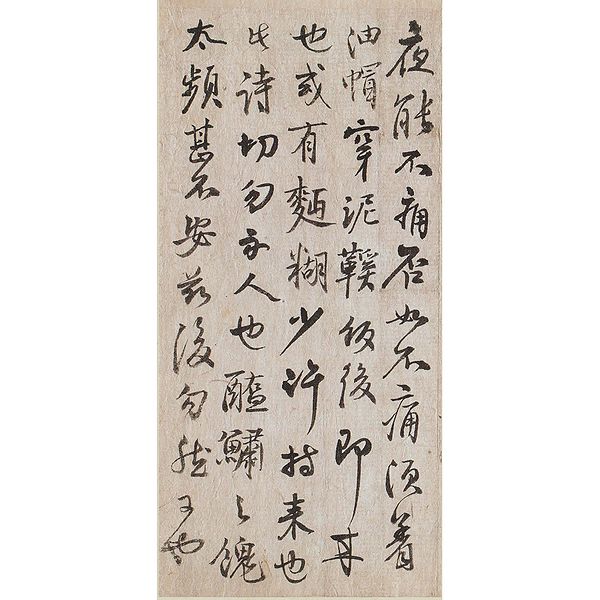 夜能不痛否如不痛須着
油帽穿泥鞵飯後即來
也或有麪糊少許持來也
此詩切勿示人也醢鱐之餽
太頻甚不安茲後勿然可也